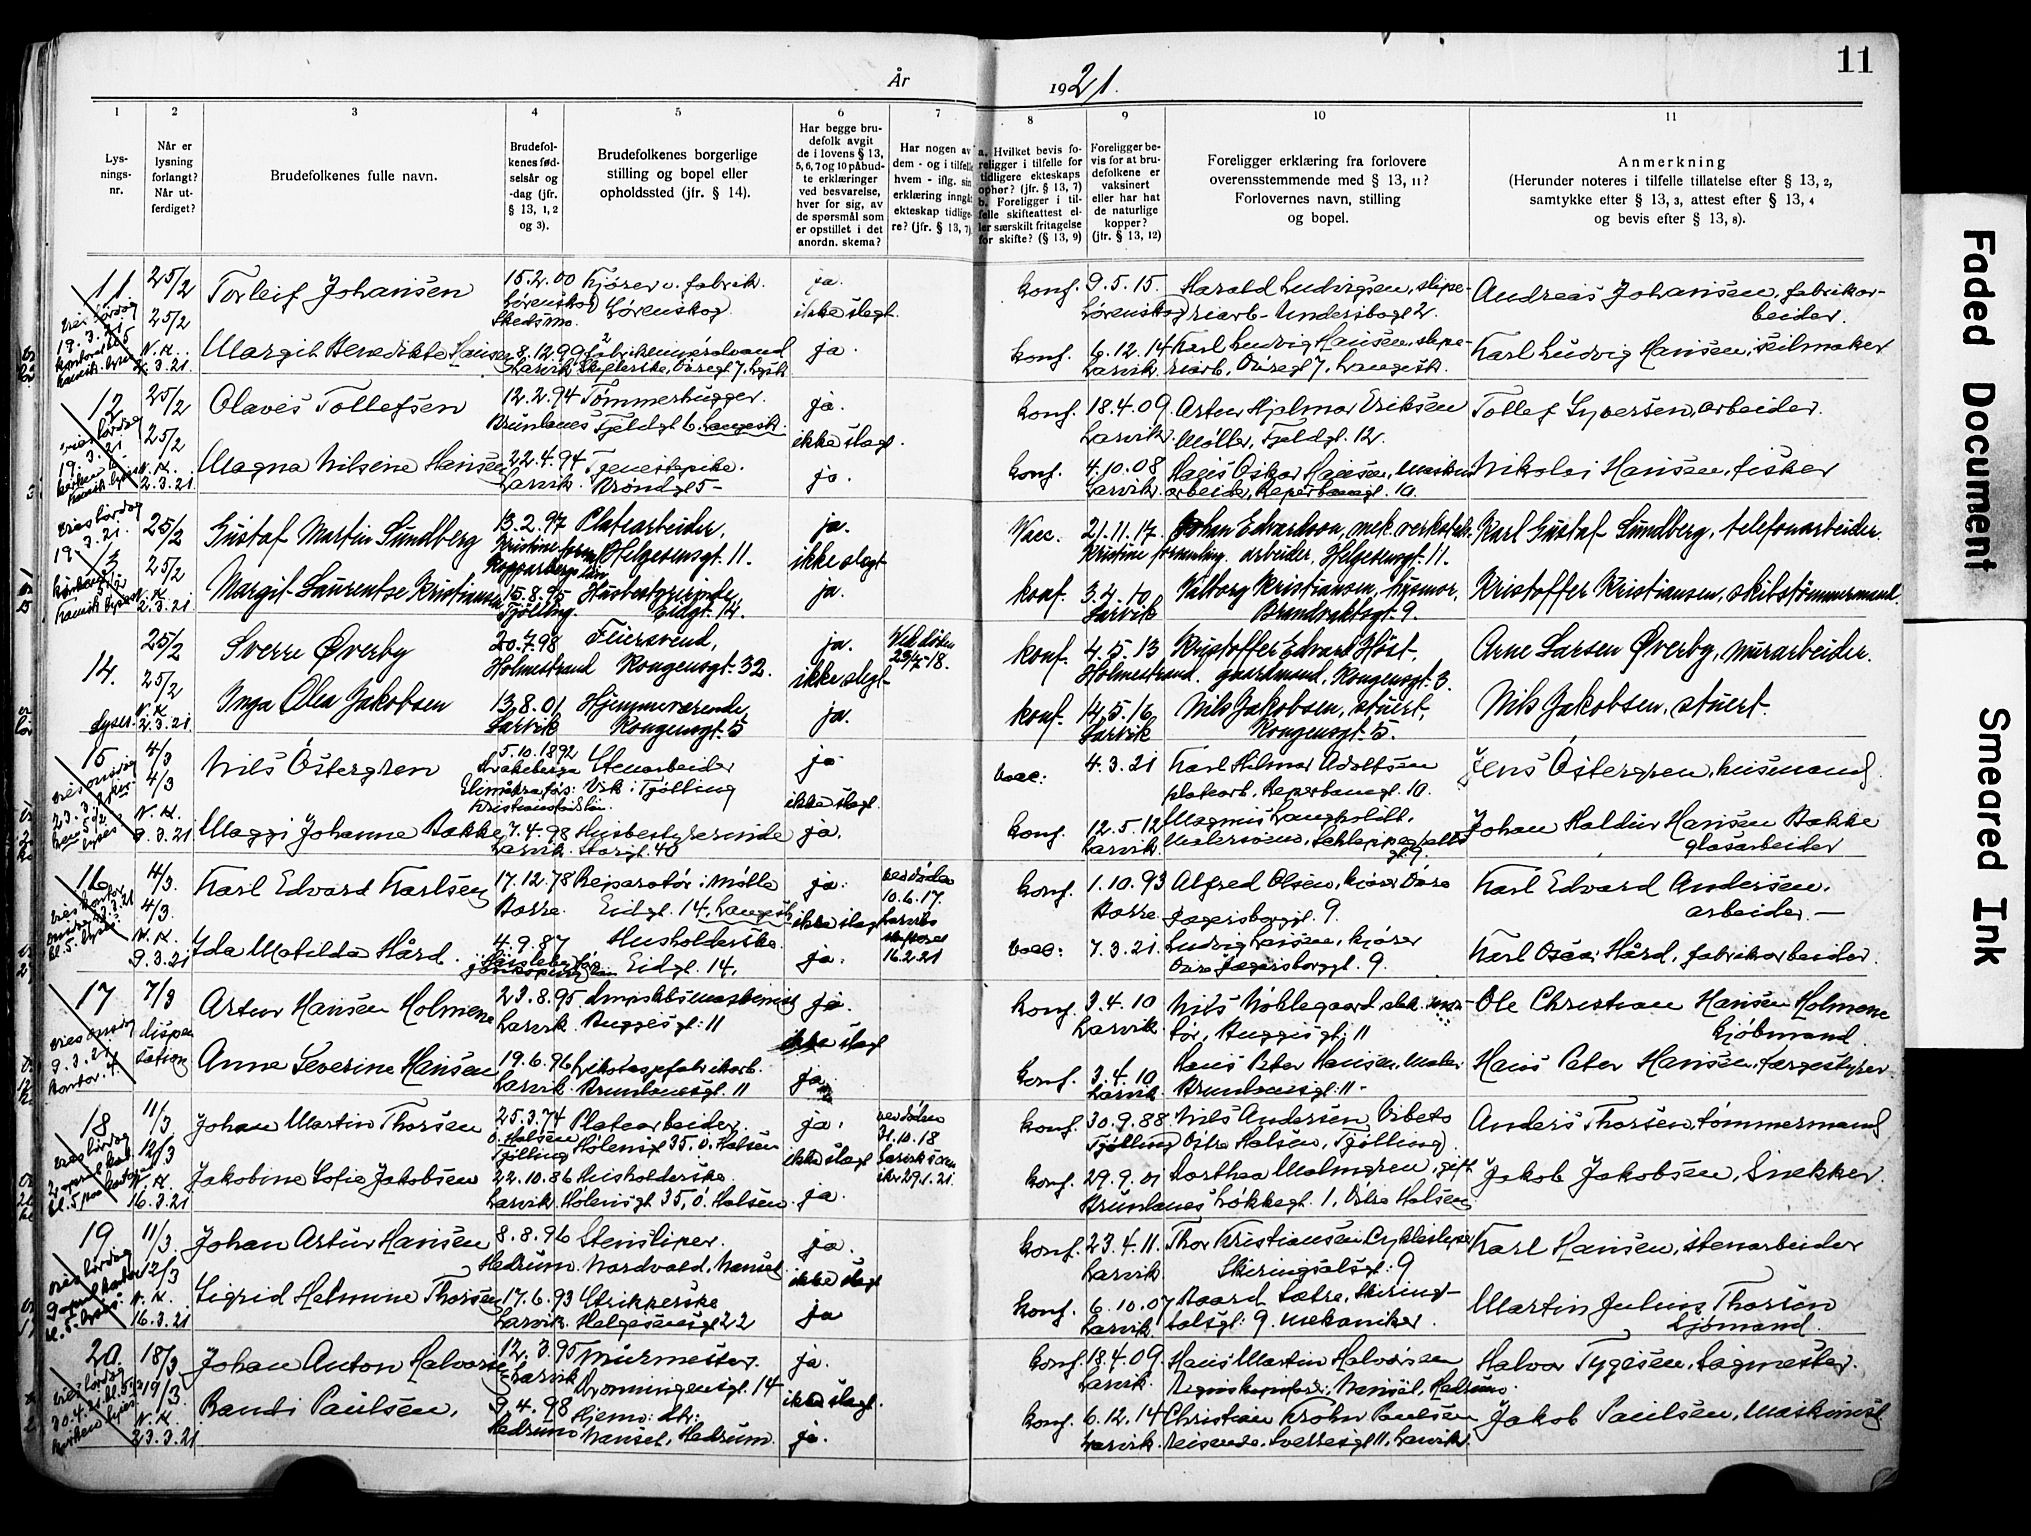 År 1921.
11
1 2 3 4 5 6 7 8 9 10 11
Lys-
nings-
nr.
Når er
lysning
forlangt?
Når ut-
ferdiget?
Brudefolkenes fulle navn.
Brudefol-
kenes fød-
selsår og
-dag (jfr.
§ 13, 1, 2
og 3).
Brudefolkenes borgerlige
stilling og bopel eller
opholdssted (jfr. § 14).
Har begge bru-
defolk avgit
de i lovens § 13,
5, 6, 7 og 10 påbud-
te erklæringer
ved besvarelse,
hver for sig, av
de spørsmål som
er opstillet i det
anordn. skema?
Har nogen av
dem - og i tilfelle
hvem - iflg. sin
erklæring inngåt
ekteskap tidlige-
re? (jfr. § 13, 7)
a. Hvilket bevis fo-
religger i tilfelle for
tidligere ekteskaps
ophør? (jfr. § 13, 7)
b. Foreligger i til-
felle skifteattest el-
ler særskilt fritagelse
for skifte? (§ 13, 9)
Foreligger be-
vis for at bru-
defolkene er
vaksinert
eller har hat
de naturlige
kopper?
(jfr. § 13, 12)
Foreligger erklæring fra forlovere
overensstemmende med § 13, 11?
Forlovernes navn, stilling
og bopel.
Anmerkning
(Herunder noteres i tilfelle tillatelse efter § 13, 2,
samtykke efter § 13, 3, attest efter § 13, 4
og bevis efter § 13, 8).
11 25/2 Torleif Johansen 15.2.00 Kjører v. fabrik. ja. konf. 9.5.15. Harald Ludvigsen, slipe- Andreas Johansen, fabrikar-
19.3.21 25/2 Lørenskog Skedsmo. Lørenskog ikke slegt. Lørenskog riarb. beider.
N.K. 2.3.21 Margit Benedikte Hansen 8.12.99 Larvik ja. konf. 6.12.14 Larvik. Karl Ludvig Hansen, slipe- Karl Ludvig Hansen, seilmaker
riarb., Øiregt 7, Langesk.
12 25/2 Olaves Tollefsen 12.2.94 Tømmerhugger. ja. konf. 18.4.09. Artur Hjelmar Eriksen Tollef Syversen, arbeider.
19.3.21 25/2 Brunlanes Fjeldgt 6. Langesk. ikke slegt. Larvik. Møller, Fjeldgt. 12.
N.K. 2.3.21 Magna Nilsine Hansen 22.4.94 Tjenestepike. ja. konf. 4.10.08 Oskar Hansen, Maskin- Nikolai Hansen, fisker
Larvik. Brøndgt 5- Larvik. arbeider, Reperbanegt. 10.
vies lørdag
19.3.21. 13 25/2 Gustaf Martin Sundberg 13.2.97 Platearbeider, ja. Vacc. 21.11.17 Johan Edvardson, mek. verksteds- Karl Gustaf Sundberg, telefonarbeider.
25/2 Helgesensgt. 11. ikke slegt Kristine forsamling. arbeider, Helgesensgt. 11.
N.K. 2.3.21 Margit Laurentse Kristiansen 15.8.95 Husbestyrerinde, ja. konf. 3.4.10 Valborg Kristiansen, husmor, Kristoffer Kristiansen, skibstømmermand.
Tjølling. Eidgt. 14. Larvik Brandvaktsgt. 9.
14. 25/2 Sverre Øverby 20.7.98 Feiersvend, ja. Ved døden konf. 4.5.13 Kristoffer Edvard Høst, Arne Larsen Øverby, murarbeider.
25/2 Holmestrand Kongensgt. 32. ikke slegt- Holmestrand. gaardmand, Kongensgt. 3.
N.K. 2.3.21 Inga Olea Jakobsen 13.8.01 Hjemmeværende, ja. konf. 14.5.16 Nils Jakobsen, stuert, Nils Jakobsen, stuert.
Larvik Kongensgt. 5 Larvik Kongensgt. 5.
15 4/3 Nils Östergren 5.10.1892 Stenarbeider ja vacc: 4.3.21 Karl Hilmar Adolfsen Jens Östergren, husmand.
vies onsdag 23.3.21 4/3 Vik i Tjølling ikke slegt. platearb. Reperbanegt. 10.
N.K. 9.3.21 Maggi Johanne Bakke 7.4.98 Husbestyrerinde ja. konf. 12.5.12 Magnus Langholdt, Johan Haldur Hansen Bakke
Larvik. Storgt. 40 Larvik. glasarbeider
16 4/3. Karl Edvard Karlsen 17.12.78 Reparatør i Mølle ja. ved døden 10.6.17. konf. 1.10.93 Alfred Olsen, kjører Øvre Karl Edvard Andersen.
4/3. Borre. Eidgt. 14, Langesk ikke slegt Larviks skifteret 16.2.21 Borre Jægersborggt. 9. arbeider. —
N.K. 9.3.21 Ida Matilda Hård. 4.9.87 Husholderske. ja. vacc: 7.3.21. Ludvig Larsen, kjører Karl Oscar Hård, fabrikarbeider.
Eidgt. 14. Øvre Jægersborggt. 9.
17 7/3 Artur Hansen Holmene 23.8.95 Larvik. ja. konf. 3.4.10 Larvik. Nils Nøklegaard Ole Christian Hansen Holmene
vies onsdag 9.3.21 kontor. dispensation Bugges gt: 11 ikke slegt Bugges gt. 11 kjøbmand.
Anne Severine Hansen 19.6.96 Larvik. Brunlanesgt. 11 ja konf. 3.4.10 Larvik. Hans Peter Hansen, Brunlanesgt. 11- Hans Peter Hansen, færgestyrer
18 11/3 Johan Martin Thorsen 25.3.74 Platearbeider. ja. ved døden 31.10.18 konf. 30.9.88 Nils Andersen Vibeto Anders Thorsen, tømmermand
vies lørdag 12/3 Ø. Halsen Tjølling Holensgt 35, Ø. Halsen ikke slegt Tjølling Østre Halsen, Tjølling
N.K. 16.3.21 Jakobine Sofie Jakobsen 22.10.86 Husholderske ja. konf. 29.9.01 Dorthea Malmgren, gift Jakob Jakobsen, Snekker.
Larvik. Holensgt. 35, Ø. Halsen Brunlanes Løkkegt. 1, Østre Halsen
19 11/3. Johan Artur Hansen 8.8.96 Stensliper. ja. konf. 23.4.11. Thor Kristiansen Cyklesliper Karl Hansen, stenarbeider
vies lørdag 12/3 Hedrum. Nordvald, Nanset ikke slegt Larvik. Skiringsalsgt: 9
N.K. 16.3.21 Sigrid Helmine Thorsen 17.6.93 Strikkerske ja konf. 6.10.07 Baard Sætre, Skiring- Martin Julius Thorsen
Larvik. Helgesensgt 22 Larvik. salsgt: 9. Mekaniker. sjømand.
20. 18/3 Johan Anton Halvorsen 12.3.95 Murmester. ja. konf. 18.4.09. Hans Martin Halvorsen Halvor Tygesen, Sagmester.
vies lørdag 30.4.21 19/3. Larvik Dronningensgt. 14 ikke slegt. Larvik. Nanset, Hedrum.
N.K. 23.3.21 Randi Paulsen. 9.4.98 Hjemv. dtr: ja. konf. 6.12.14 Christian Krohn Paulsen Jakob Paulsen, Maskinist
Hedrum Nanset, Hedrum. Larvik. Reisende, Sverresgt 11, Larvik.
Faded Document
Smeared Ink